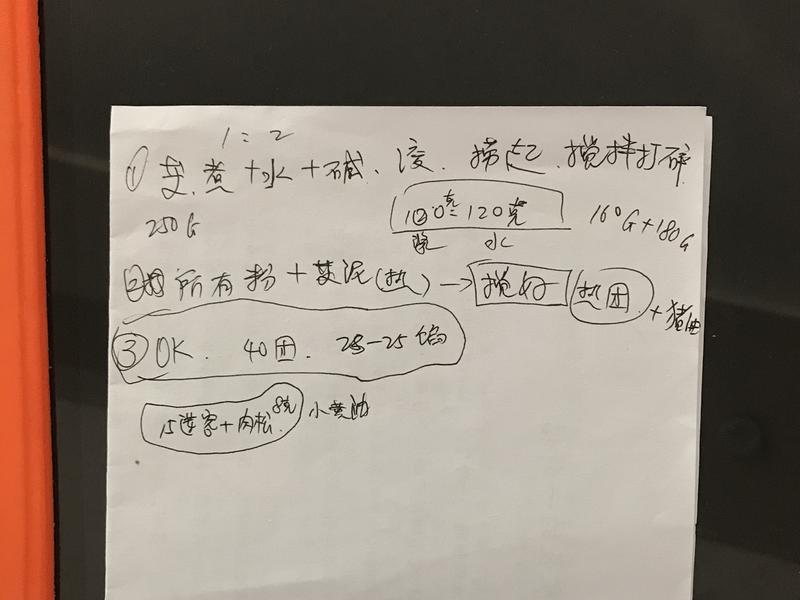 1:2
① 艾.煮+水+碱、凌.捞起.搅拌打碎
250G
100克=120克 160G+180G
水
所有粉+艾泥(热)→搅好 热团+猪油
③ OK. 40团. 25馅
15莲容+肉松8克 小黄油